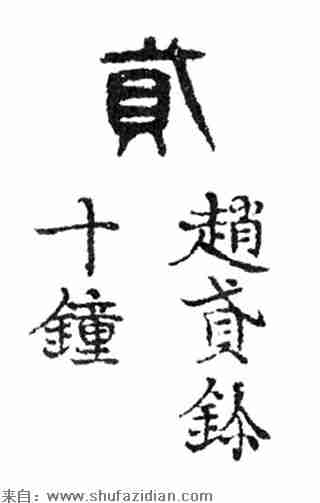 貣
趙貣鉩
十鐘
来自：www.shufazidian.com